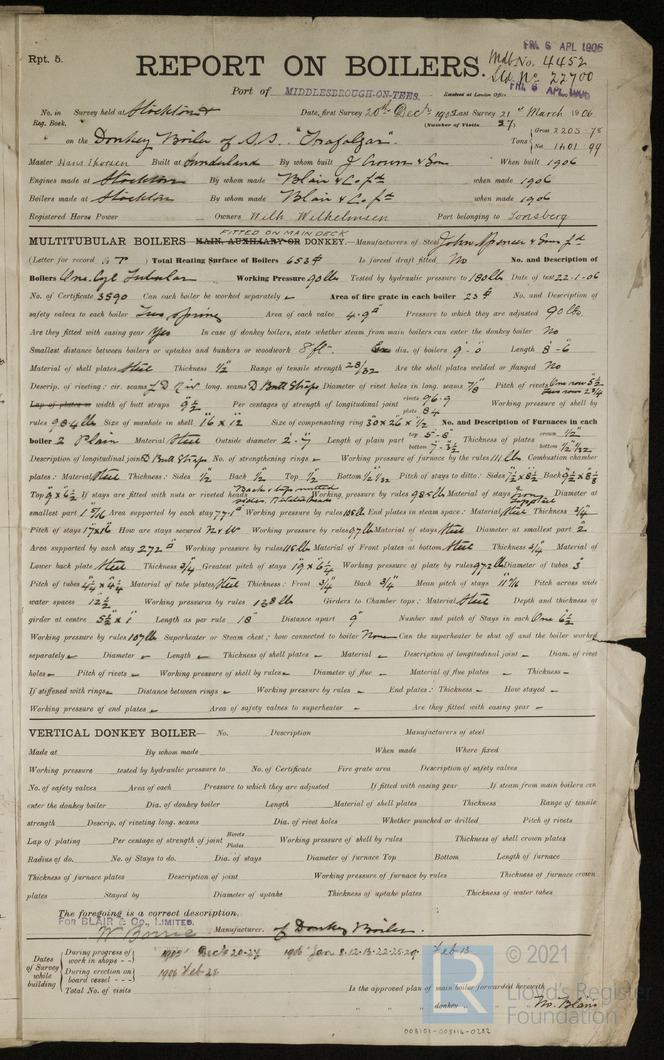 FRI. 6 APL 1906
Rpt. 5.
REPORT ON BOILERS.
Mdb No. 4452
Lld. No. 22700
Port of MIDDLESBROUGH-ON-TEES.
Received at London Office FRI. 6 APL. 1906
No. in Reg. Book. Survey held at Stockton Date, first Survey 20th Dec 1905 Last Survey 21st March 1906
(Number of Visits
on the Donkey Boiler of S.S. "Trafalgar" Tons Gross 2203.78 Net 1401.99
Master Hans Thorsen Built at Sunderland By whom built J Crown & Son When built 1906
Engines made at Stockton By whom made Blair & Co Ltd when made 1906
Boilers made at Stockton By whom made Blair & Co Ltd when made 1906
Registered Horse Power Owners Wilh Wilhelmsen Port belonging to Tonsberg
FITTED ON MAIN DECK
MULTITUBULAR BOILERS MAIN, AUXILIARY OR DONKEY.—Manufacturers of Steel John Spencer & Sons Ltd
(Letter for record ) Total Heating Surface of Boilers Is forced draft fitted No No. and Description of
Boilers One Cyl Tubular Working Pressure 90 lb Tested by hydraulic pressure to 180 lb Date of test 22.1.06
No. of Certificate 3590 Can each boiler be worked separately Area of fire grate in each boiler 23 No. and Description of
safety valves to each boiler Two Spring Area of each valve 4.9 Pressure to which they are adjusted 90 lb.
Are they fitted with easing gear Yes In case of donkey boilers, state whether steam from main boilers can enter the donkey boiler No
Smallest distance between boilers or uptakes and bunkers or woodwork 8 ft. dia. of boilers 9'-0 Length 8-6
Material of shell plates Steel Thickness 1/2 Range of tensile strength 28/32 Are the shell plates welded or flanged No
Descrip. of riveting: cir. seams long. seams D Butt Straps Diameter of rivet holes in long. seams 7/8 Pitch of rivets
Lap of plates or width of butt straps 9 1/2 Per centages of strength of longitudinal joint rivets 96.9 plate 84 Working pressure of shell by
rules 98.4 lb Size of manhole in shell 16 x 12 Size of compensating ring 30 x 26 x 1/2 No. and Description of Furnaces in each
boiler 2 Plain Material Steel Outside diameter 2-7 Length of plain part top 5-8 bottom Thickness of plates crown bottom
Description of longitudinal joint D Butt Straps No. of strengthening rings Working pressure of furnace by the rules 111 lb Combustion chamber
plates: Material Steel Thickness: Sides 1/2 Back 1/2 Top 1/2 Bottom Pitch of stays to ditto: Sides Back
Top 9 x 6 1/2 If stays are fitted with nuts or riveted heads Working pressure by rules Material of stays Diameter at
smallest part Area supported by each stay Working pressure by rules End plates in steam space: Material Steel Thickness 3/4
Pitch of stays 17 x 16 How are stays secured N & W Working pressure by rules 97 lb Material of stays Steel Diameter at smallest part 2
Area supported by each stay 272 Working pressure by rules 115 lb Material of Front plates at bottom Steel Thickness 3/4 Material of
Lower back plate Steel Thickness 3/4 Greatest pitch of stays Working pressure of plate by rules 97.2 lb Diameter of tubes 3
Pitch of tubes 4 1/4 x 4 1/4 Material of tube plates Steel Thickness: Front 3/4 Back 3/4 Mean pitch of stays Pitch across wide
water spaces 12 1/2 Working pressures by rules Girders to Chamber tops: Material Steel Depth and thickness of
girder at centre Length as per rule 18" Distance apart 9" Number and pitch of Stays in each One 6 1/2
Working pressure by rules 107 lb Superheater or Steam chest; how connected to boiler None Can the superheater be shut off and the boiler worked
separately Diameter Length Thickness of shell plates Material Description of longitudinal joint Diam. of rivet
holes Pitch of rivets Working pressure of shell by rules Diameter of flue Material of flue plates Thickness
If stiffened with rings Distance between rings Working pressure by rules End plates: Thickness How stayed
Working pressure of end plates Area of safety valves to superheater Are they fitted with easing gear
VERTICAL DONKEY BOILER— No. Description Manufacturers of steel
Made at By whom made When made Where fixed
Working pressure tested by hydraulic pressure to No. of Certificate Fire grate area Description of safety valves
No. of safety valves Area of each Pressure to which they are adjusted If fitted with easing gear If steam from main boilers can
enter the donkey boiler Dia. of donkey boiler Length Material of shell plates Thickness Range of tensile
strength Descrip. of riveting long. seams Dia. of rivet holes Whether punched or drilled Pitch of rivets
Lap of plating Per centage of strength of joint Rivets Plates Working pressure of shell by rules Thickness of shell crown plates
Radius of do. No. of Stays to do. Dia. of stays Diameter of furnace Top Bottom Length of furnace
Thickness of furnace plates Description of joint Working pressure of furnace by rules Thickness of furnace crown
plates Stayed by Diameter of uptake Thickness of uptake plates Thickness of water tubes
The foregoing is a correct description,
FOR BLAIR & Co., LIMITED.
Manufacturer. of Donkey Boiler.
Dates of Survey while building
During progress of work in shops - - 1905 Dec 20-27 1906 Jan 8-12-18-22-25-29 Feb 13
During erection on board vessel - - - 1906 Feb 28
Total No. of visits Is the approved plan of main boiler forwarded herewith
" " " donkey " " "
© 2021
Lloyd's Register
Foundation
003101-003116-0282